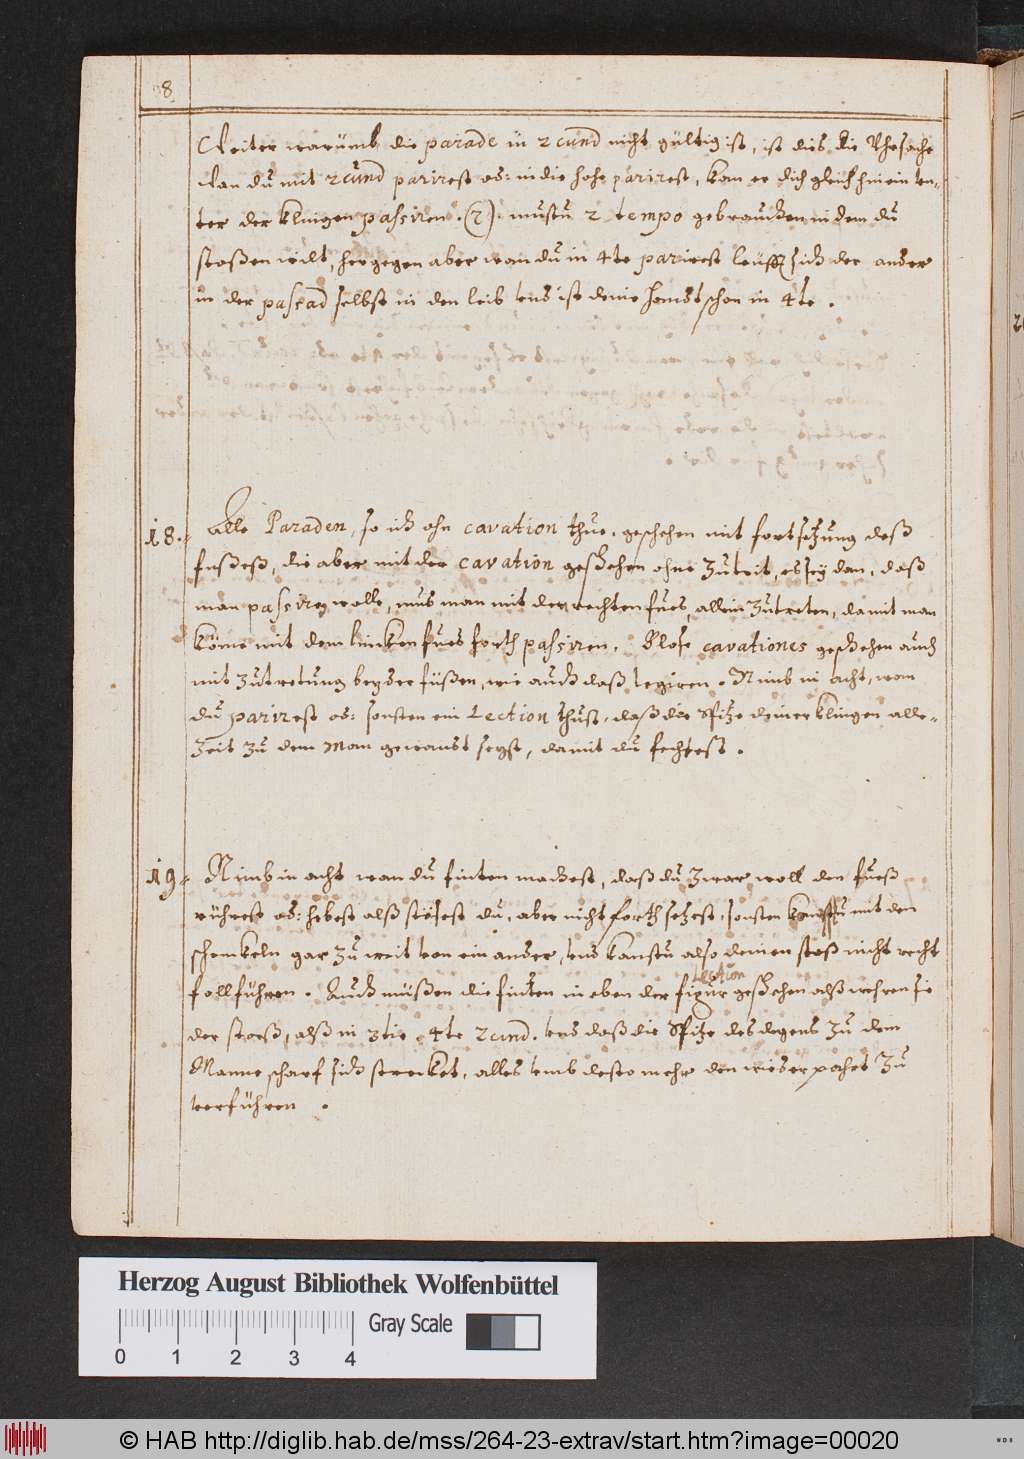 8
Weiter warümb die parade in 2cund nicht gültig ist, ist dies die Uhrsache
Wan du mit 2cund parirest od: in die hohe parirest, kan er dich gleich hinein un-
ter der klingen passiren. (2). mustu 2 tempo gebrauchen in dem du
stoßen wilt, hergegen aber wan du in 4te parirest leufft sich der ander
in der passad selbst in den leib und ist deine handt schon in 4te.
18. Alle Paraden, so ich ohn cavation thue, geschehen mit fortsetzung deß
fußeß, die aber mit der cavation geschehen ohne zutrit, es sey dan, daß
man passiren wolle, mus man mit den rechten fues allein zutreten, damit man
köme mit dem lincken fues forth passiren. Blose cavationes geschehen auch
mit zutretung beyder füßen, wie auch daß legiren. Nimb in acht, wan
du parirest od: sonsten ein Lection thust, daß die spitze deiner klingen alle-
zeit zu dem Man gewandt seyst, damit du fechtest.
19. Nimb in acht wan du finten machest, daß du zwar woll den fueß
rührest od: hebest alß stösest du, aber nicht forth setzest, sonsten kombstu mit den
schenckeln gar zu weit von ein ander, und kanstu also deinen stoß nicht recht
follführen. Auch müßen die finten in eben der figur geschehen alß wehren sie
Lection
der stoeß, alß in 3tie, 4te 2cund. und daß die spitze des degens zu dem
Manne scharf sich strecket, alles umb desto mehr den wiederpahrt zu
verführen.
Herzog August Bibliothek Wolfenbüttel
0 1 2 3 4
Gray Scale
© HAB http://diglib.hab.de/mss/264-23-extrav/start.htm?image=00020